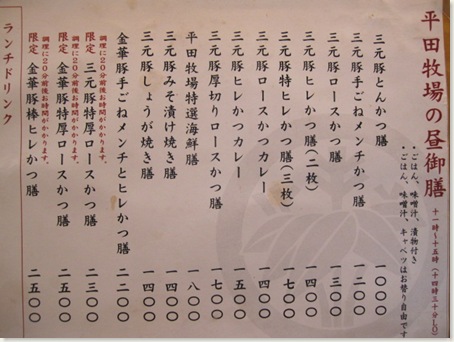 平田牧場の昼御膳
十一時~十五時(十四時三十分L.O)
・ごはん、味噌汁、漬物付き
・ごはん、味噌汁、キャベツはお替り自由です
三元豚とんかつ膳 一〇〇〇
三元豚手ごねメンチかつ膳 一二〇〇
三元豚ロースかつ膳 一三〇〇
三元豚ヒレかつ膳(二枚) 一四〇〇
三元豚特ヒレかつ膳(三枚) 一七〇〇
三元豚ロースかつカレー 一四〇〇
三元豚ヒレかつカレー 一五〇〇
三元豚厚切りロースかつ膳 一七〇〇
平田牧場特選海鮮膳 一八〇〇
三元豚みそ漬け焼き膳 一四〇〇
三元豚しょうが焼き膳 一四〇〇
金華豚手ごねメンチとヒレかつ膳 二二〇〇
調理に20分前後お時間がかかります。
限定 三元豚特厚ロースかつ膳 二三〇〇
調理に20分前後お時間がかかります。
限定 金華豚特厚ロースかつ膳 二五〇〇
調理に20分前後お時間がかかります。
限定 金華豚棒ヒレかつ膳 二五〇〇
ランチドリンク